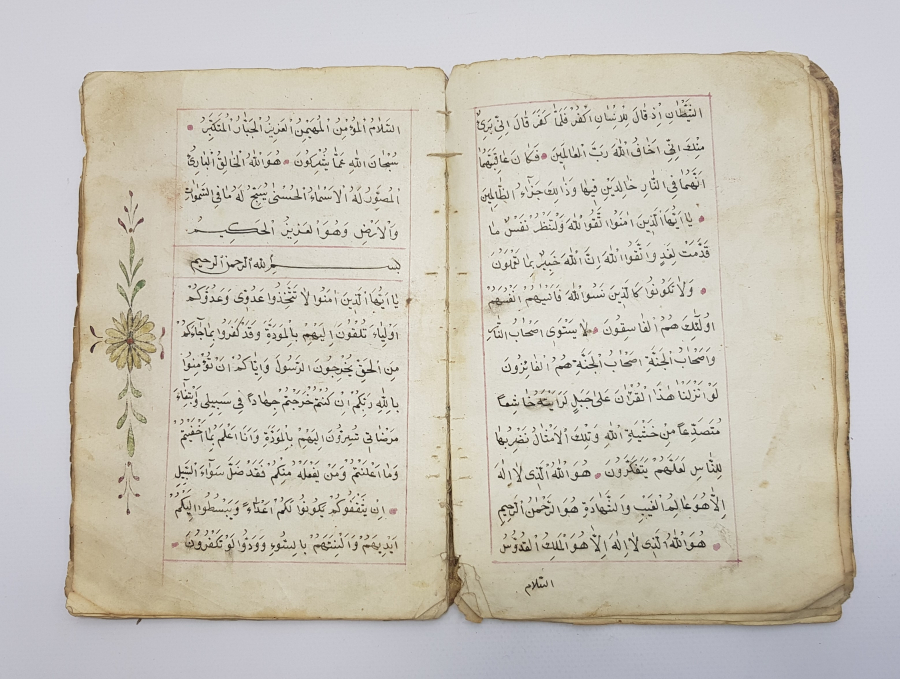 الشَّيْطَانِ اِذْ قَالَ لِلْاِنْسَانِ اكْفُرْ فَلَمَّا كَفَرَ قَالَ اِنّٖى بَرٖىٌٔ
مِنْكَ اِنّٖى اَخَافُ اللّٰهَ رَبَّ الْعَالَمٖينَ فَكَانَ عَاقِبَتَهُمَا
اَنَّهُمَا فِى النَّارِ خَالِدَيْنِ فٖيهَا وَذٰلِكَ جَزَاءُ الظَّالِمٖينَ
يَا اَيُّهَا الَّذٖينَ اٰمَنُوا اتَّقُوا اللّٰهَ وَلْتَنْظُرْ نَفْسٌ مَا
قَدَّمَتْ لِغَدٍ وَاتَّقُوا اللّٰهَ اِنَّ اللّٰهَ خَبٖيرٌ بِمَا تَعْمَلُونَ
وَلَا تَكُونُوا كَالَّذٖينَ نَسُوا اللّٰهَ فَاَنْسٰيهُمْ اَنْفُسَهُمْ
اُولٰئِكَ هُمُ الْفَاسِقُونَ لَا يَسْتَوٖى اَصْحَابُ النَّارِ
وَاَصْحَابُ الْجَنَّةِ اَصْحَابُ الْجَنَّةِ هُمُ الْفَائِزُونَ
لَوْ اَنْزَلْنَا هٰذَا الْقُرْاٰنَ عَلٰى جَبَلٍ لَرَاَيْتَهُ خَاشِعًا
مُتَصَدِّعًا مِنْ خَشْيَةِ اللّٰهِ وَتِلْكَ الْاَمْثَالُ نَضْرِبُهَا
لِلنَّاسِ لَعَلَّهُمْ يَتَفَكَّرُونَ هُوَ اللّٰهُ الَّذٖى لَا اِلٰهَ
اِلَّا هُوَ عَالِمُ الْغَيْبِ وَالشَّهَادَةِ هُوَ الرَّحْمٰنُ الرَّحٖيمُ
هُوَ اللّٰهُ الَّذٖى لَا اِلٰهَ اِلَّا هُوَ الْمَلِكُ الْقُدُّوسُ
السّلام
السَّلَامُ الْمُؤْمِنُ الْمُهَيْمِنُ الْعَزٖيزُ الْجَبَّارُ الْمُتَكَبِّرُ
سُبْحَانَ اللّٰهِ عَمَّا يُشْرِكُونَ هُوَ اللّٰهُ الْخَالِقُ الْبَارِئُ
الْمُصَوِّرُ لَهُ الْاَسْمَاءُ الْحُسْنٰى يُسَبِّحُ لَهُ مَا فِى السَّمٰوَاتِ
وَالْاَرْضِ وَهُوَ الْعَزٖيزُ الْحَكٖيمُ
بسم الله الرحمن الرحيم
يَا اَيُّهَا الَّذٖينَ اٰمَنُوا لَا تَتَّخِذُوا عَدُوّٖى وَعَدُوَّكُمْ
اَوْلِيَاءَ تُلْقُونَ اِلَيْهِمْ بِالْمَوَدَّةِ وَقَدْ كَفَرُوا بِمَا جَاءَكُمْ
مِنَ الْحَقِّ يُخْرِجُونَ الرَّسُولَ وَاِيَّاكُمْ اَنْ تُؤْمِنُوا
بِاللّٰهِ رَبِّكُمْ اِنْ كُنْتُمْ خَرَجْتُمْ جِهَادًا فٖى سَبٖيلٖى وَابْتِغَاءَ
مَرْضَاتٖى تُسِرُّونَ اِلَيْهِمْ بِالْمَوَدَّةِ وَاَنَا اَعْلَمُ بِمَا اَخْفَيْتُمْ
وَمَا اَعْلَنْتُمْ وَمَنْ يَفْعَلْهُ مِنْكُمْ فَقَدْ ضَلَّ سَوَاءَ السَّبٖيلِ
اِنْ يَثْقَفُوكُمْ يَكُونُوا لَكُمْ اَعْدَاءً وَيَبْسُطُوا اِلَيْكُمْ
اَيْدِيَهُمْ وَاَلْسِنَتَهُمْ بِالسُّوءِ وَوَدُّوا لَوْ تَكْفُرُونَ